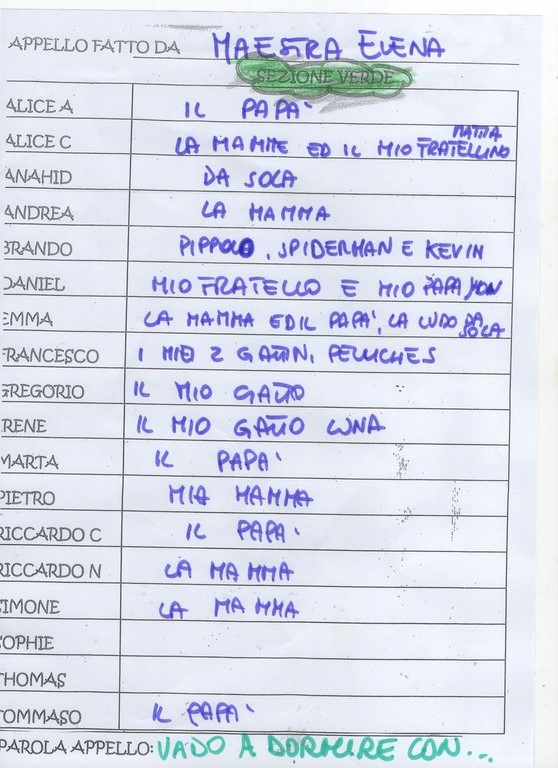 APPELLO FATTO DA MAESTRA ELENA
SEZIONE VERDE
ALICE A IL PAPA'
ALICE C LA MAMME ED IL MIO FRATELLINO MATTIA
ANAHID DA SOLA
ANDREA LA MAMMA
BRANDO PIPPOLO, SPIDERMAN E KEVIN
DANIEL MIO FRATELLO E MIO PAPA'
EMMA LA MAMMA ED IL PAPA', LA LUDO DA SOLA
FRANCESCO I MIEI 2 GATTINI PELUCHES
GREGORIO IL MIO GATTO
IRENE IL MIO GATTO LUNA
MARTA IL PAPA'
PIETRO MIA MAMMA
RICCARDO C IL PAPA'
RICCARDO N LA MAMMA
SIMONE LA MAMMA
SOPHIE
THOMAS
TOMMASO IL PAPA'
PAROLA APPELLO: VADO A DORMIRE CON...